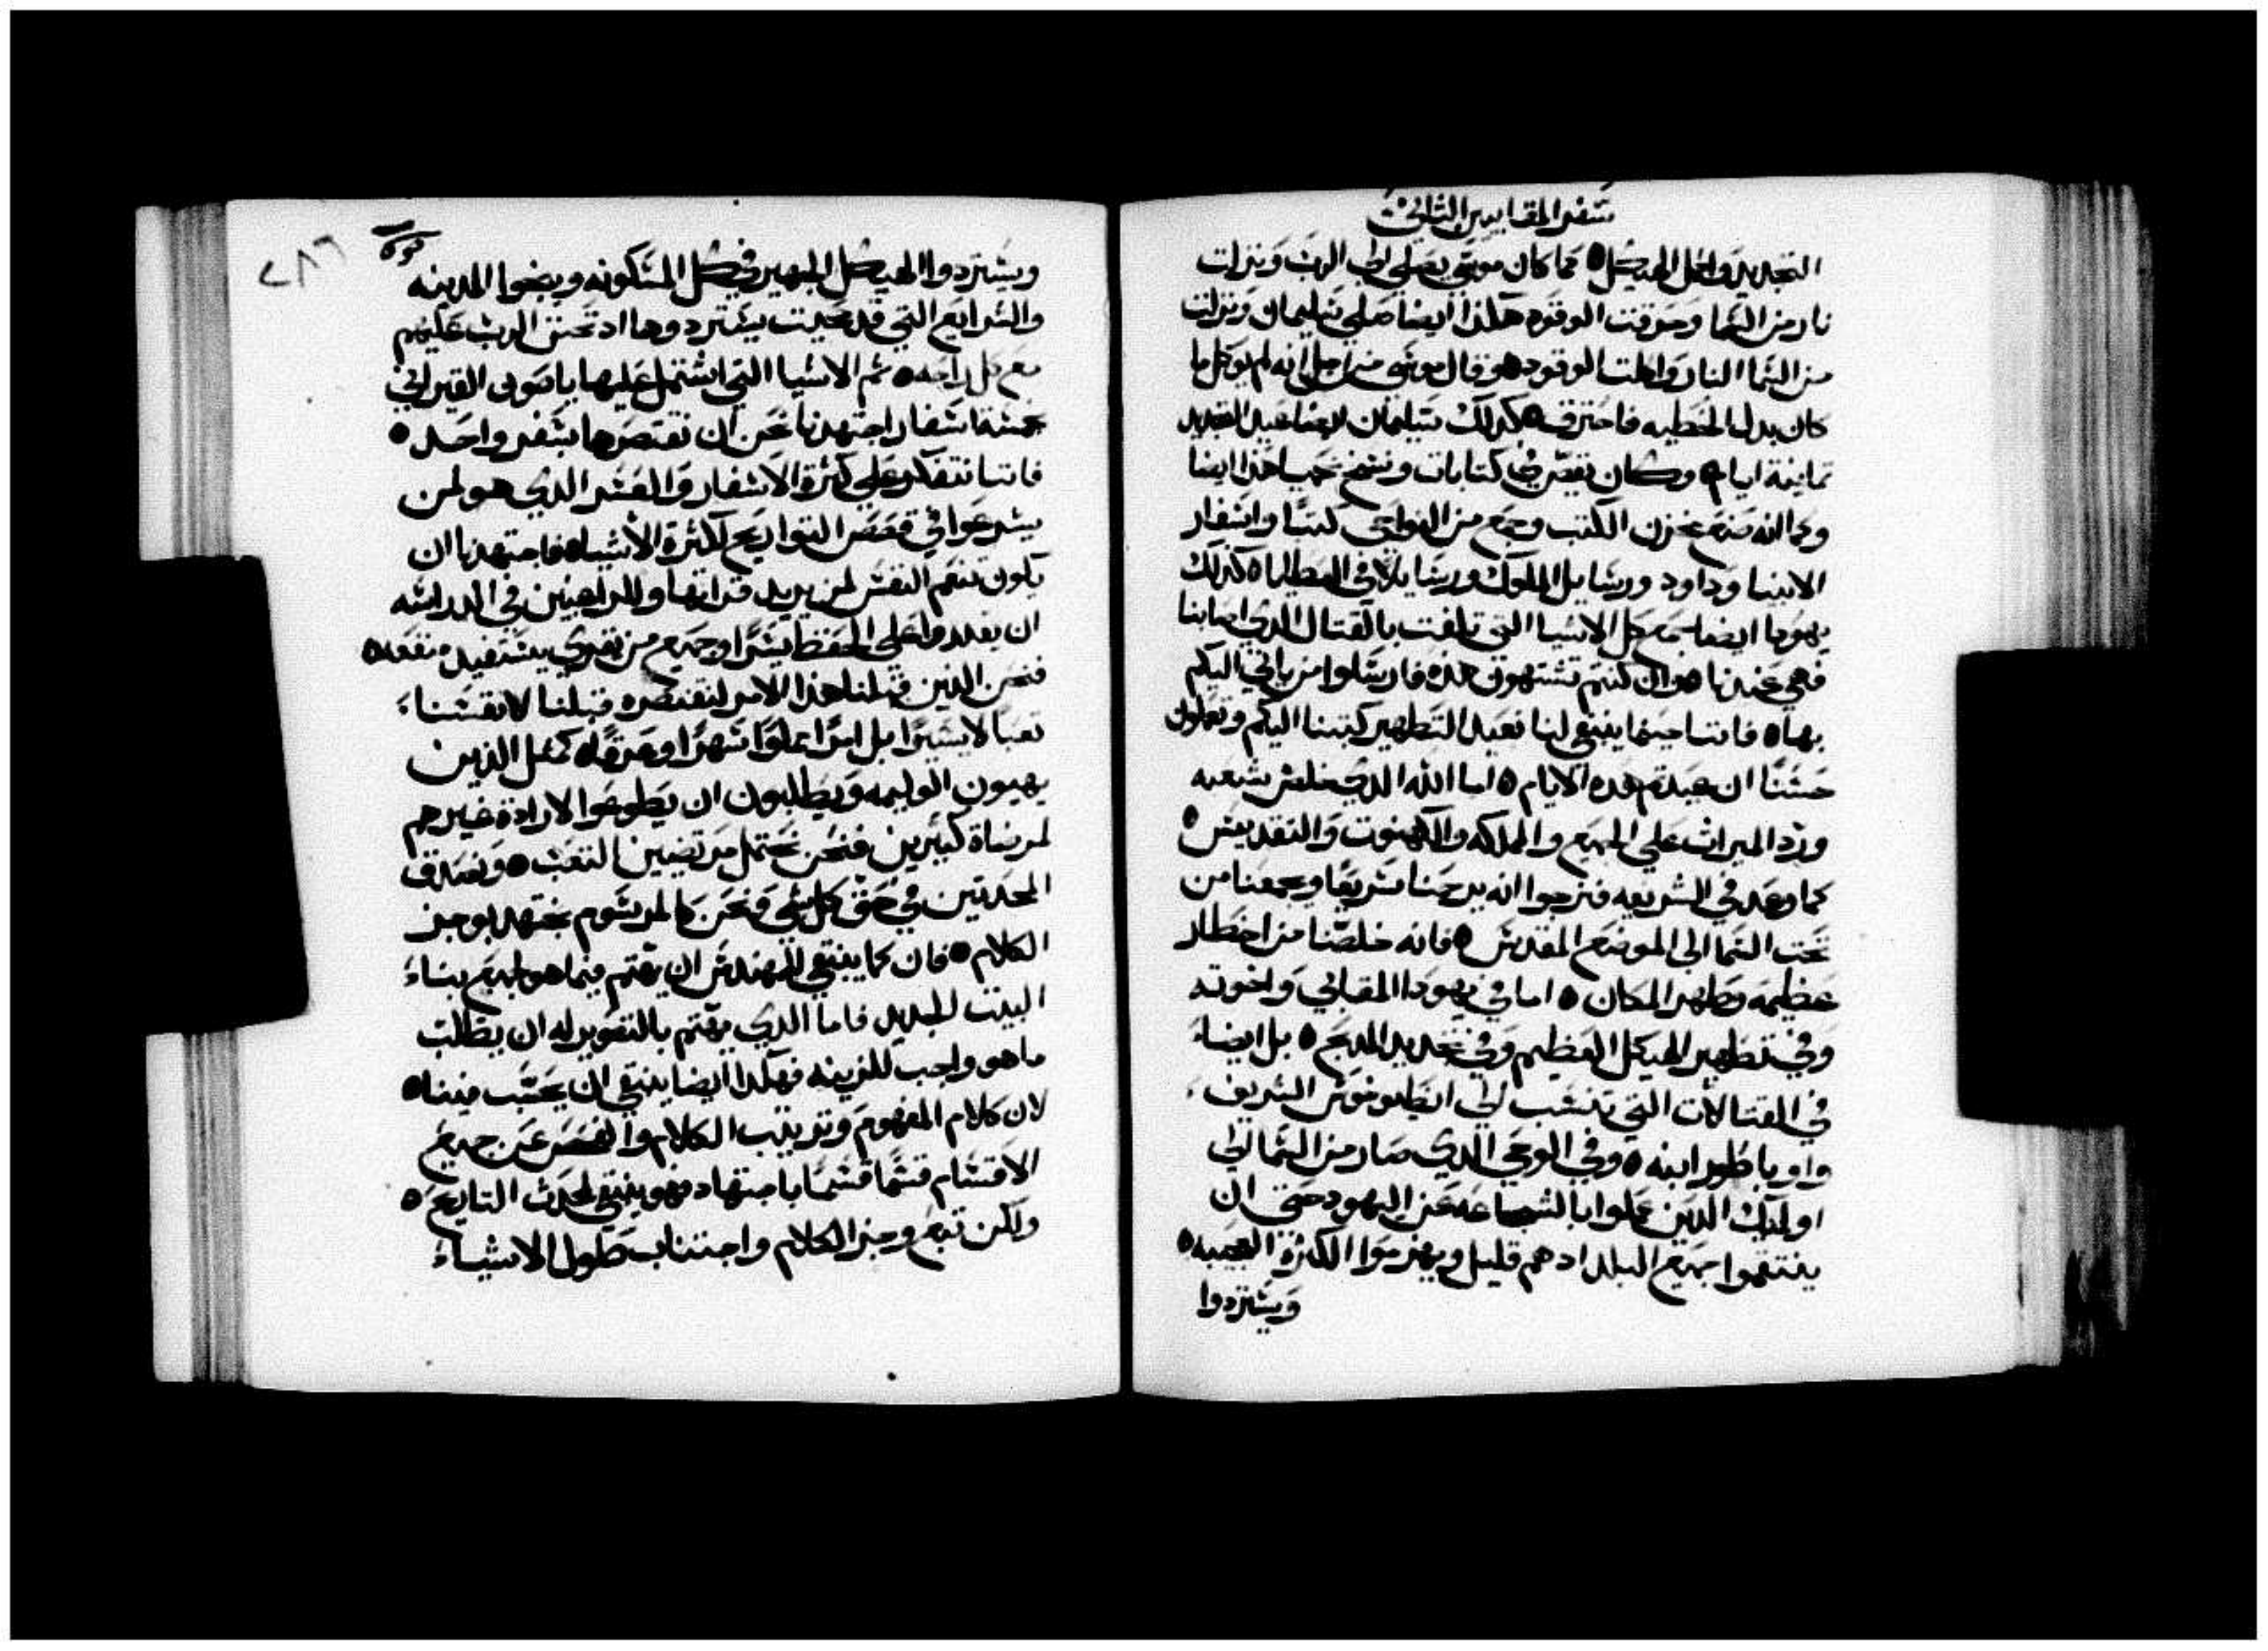 سفر المقابيين الثاني
التجديد واكل الهيكل ٥ كما كان موسى يصلي الى الرب ونزلت
نار من السما وحرقت الوقود هكذا ايضا صلى سليمان ونزلت
من السما النار واكلت الوقود ٥ وقال موسى من اجل انه لم يوكل ما
كان بدل الخطيه فاحترق ٥ كذلك سليمان ايضا عيد التجديد
تمانية ايام ٥ وكان يقص في كتابات ونسخ نحميا هذا ايضا
وكما انه صنع مخزن الكتب وجمع من النواحي كتبًا واسفار
الانبيا وداود ورسايل الملوك ورسايلا في العطايا ٥ كذلك
يهودا ايضا جمع كل الاشيا التي تلفت بالقتال الدي اصابنا
فهي عندنا ٥ وان كنتم تشتهون هذه فارسلوا من ياتي اليكم
بها ٥ فاننا حينما ينبغي لنا نعيد التطهير كتبنا اليكم وتعملون
حسنًا ان عيدتم هده الايام ٥ اما الله الدي خلص شعبه
ورد الميراث على الجميع والمملكه والكهنوت والتقديس ٥
كما وعد في الشريعه فنرجوا انه يرحمنا سريعًا ويجمعنا من
تحت السما الى الموضع المقدس ٥ فانه خلصنا من اخطار
عظيمه وطهر المكان ٥ اما في يهودا المقابي واخوته
وفي تطهير الهيكل العظيم وفي تجديد المدبح ٥ بل ايضا
في القتالات التي تنسب الى انطيوخوس الشريف
واوباطور ابنه ٥ وفي الوحي الدي صار من السما الى
اوليك الدين عملوا بالشجاعه عن اليهود حتى ان
ينتقموا جميع البلد ادهم قليل ويهزموا الكثرة العجميه ٥
ويستردوا
٢٨٦
ويستردوا الهيكل الشهير في كل المسكونه وينجوا المدينه
والشرايع التي قد محيت يستردوها اد تحنن الرب عليهم
مع كل راحه ٥ ثم الاشيا التي اشتمل عليها ياصون القيراني
بخمسة اسفار اجتهدنا نحن ان نقتصرها بسفر واحد ٥
فاننا نتفكر على كثرة الاسفار والعسر الدي هو لمن
يشرعوا في قصص التواريخ لكثرة الاشيا ٥ فاجتهدنا ان
يكون تنعم النفس لمن يريد قراتها وللراغبين في الدراسه
ان يقدروا على الحفظ يسرًا وجميع من يقرى يستفيد منفعه ٥
فنحن الدين قبلنا هذا الامر لنقتصره قبلنا لانفسنا
تعبًا لا يسيرًا بل امرًا مملوًا سهرًا وعرقًا ٥ كمثل الذين
يهيون الوليمه ويطلبون ان يطوعوا الارادة غيرهم
لمرضاة كثيرين فنحن نحتمل مرتضيين التعب ٥ ونصدق
المحدثين في حق كل شي ونحن كالمرسوم نجتهد بوجز
الكلام ٥ فان كما ينبغي للمهندس ان يهتم فيما هو لجميع بناء
البيت الجديد فاما الذي يهتم بالتصوير له ان يطلب
ما هو واجب للزينه فهكدا ايضا ينبغي ان يحسب فينا ٥
لان كلام المفهوم وترتيب الكلام والفحص عن جميع
الاقسام قسمًا قسمًا باجتهاد فهو ينبغي لمحدث التاريخ ٥
ولكن تبع وجز الكلام واجتناب طول الاشياء